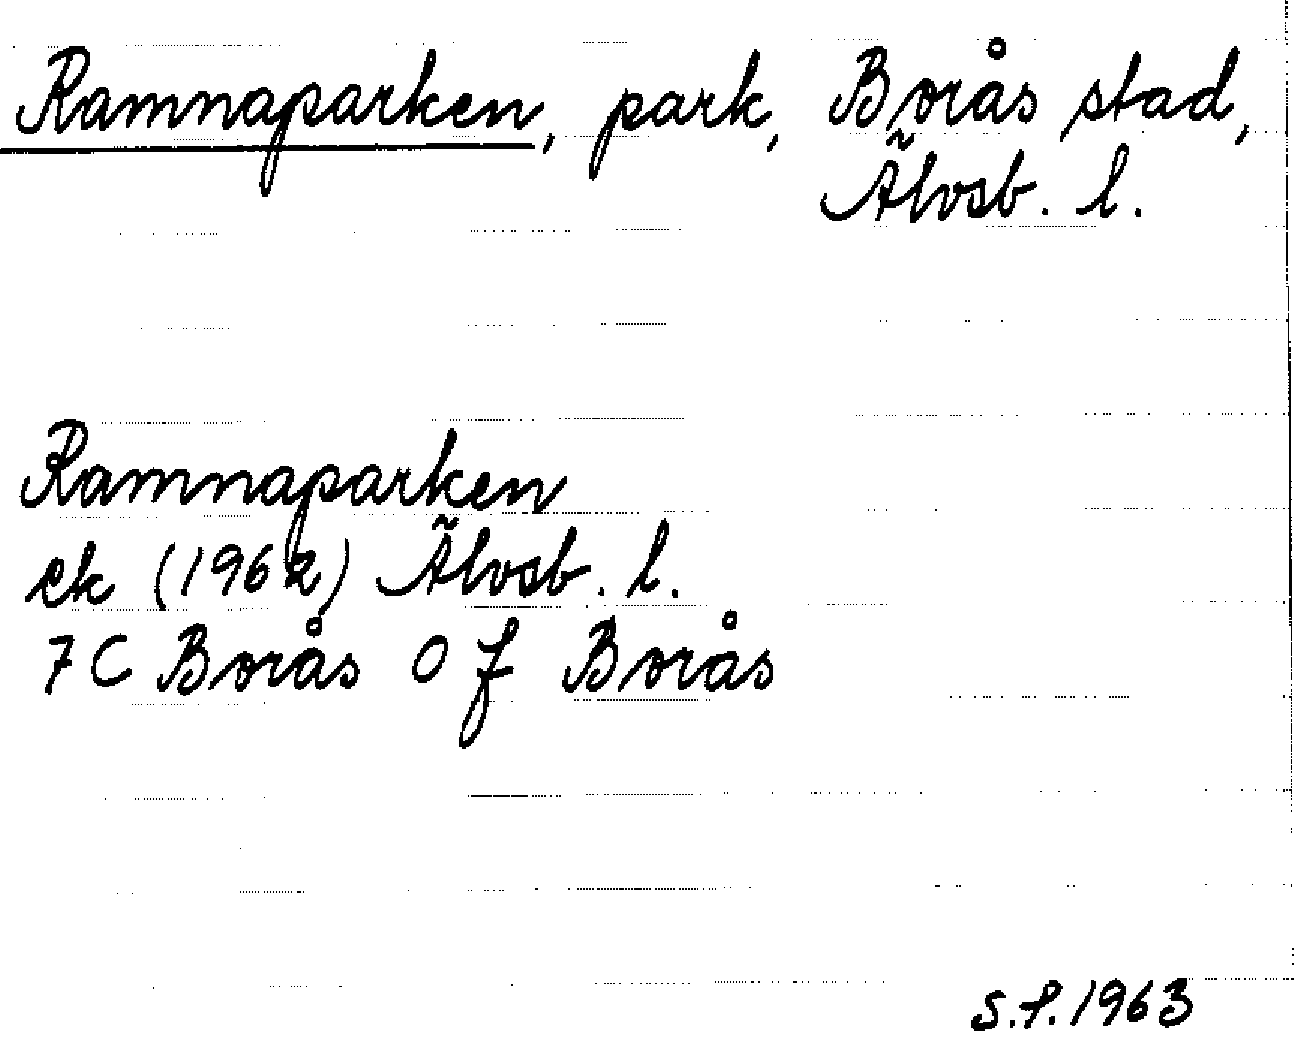 Ramnaparken, park, Borås stad,
Älvsb. l.
Ramnaparken
ek (1962) Älvsb. l.
7 C Borås 0 f Borås
S.P. 1963